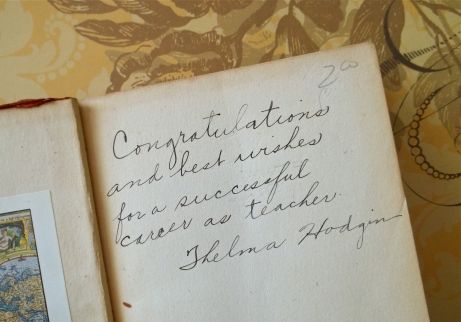 2.00
Congratulations
and best wishes
for a successful
career as teacher.
Thelma Hodgin